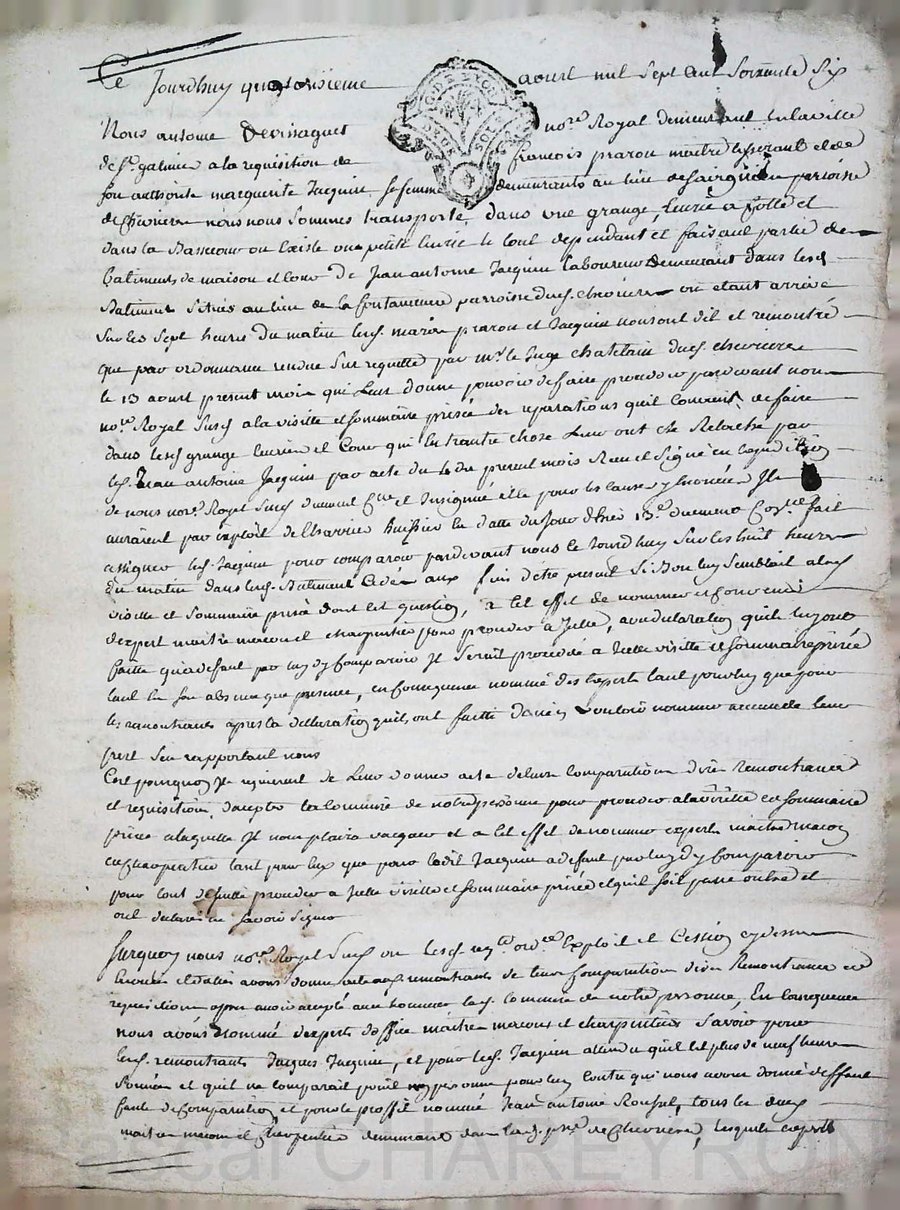 Ce Jourdhuy quatorsieme aoust mil sept cent soixante six
Nous antoine Devissaguet no.re Royal demeurant en la ville
de S.t galmier a la requisition de francois prarou maitre tisserant et de
son authorité marguerite Jacquin sa femme demeurants au lieu de paroisse
de chevriere nous nous sommes transporté dans une grange, Ecurie a Cotté et
dans la Bassecour ou Existe une petite Ecurie le tout dependant et faisant partie des
Batiments de maison et cour de Jean antoine Jacquin laboureur demeurant dans lesd.
Batiment Scitués au lieu de la fontaniere parroisse dud. chevriere ou etant arrivé
Sur les Sept heures du matin lesd. mariés prarou et Jacquin nous ont dit et remontré
que par ordonnance rendue Sur requette par m.r le Juge chatelain dud. chevriere
le 13 aoust present mois qui Leur donne pouvoir de faire proceder pardevant nous
no.re Royal Susd. a la visitte et sommaire prisée des reparations quil Convient de faire
dans lesd. grange Ecuries et Cour qui Entrautre chose Leur ont eté Relaché par
led. Jean antoine Jacquin par acte du du present mois Receu et Signé en Expedition
de nous no.re Royal Susd. duement et Insinué elle pour les causes y Enoncée Ils
auraient par Exploit de Bussier En datte du Jour d'hier 13.e duement fait
assigner led. Jacquin pour comparoir pardevant nous le Jourdhuy Sur les huit heures
du matin dans lesd. Batiment Cedés aux fins d'être present Si Bon luy Semblait alad.
visitte et Sommaire prisée dont Est question, a Cet effet de nommer et Convenir
d'expert maitre macon et charpentier pour proceder a Icelle, avec declaration qu'ils luy ont
faitte qu'a defaut par luy d'y Comparoir Il Seroit procedée a Icelle visitte et Sommaire prisée
tant En Son absence que presence, en Consequence nommé des Experts tant pour luy que pour
les remontrants apres la declaration qu'ils ont faitte Vouloir nommer de leur
part S'en rapportant nous
C'est pourquoy Ils requierent de Leur donner acte de leur Comparution dire Remontrance
et requisition, d'accepter la Commise de notre personne pour proceder a la visitte et Sommaire
prisée a laquelle Il nous plaira vacquer et a Cet effet de nommer experts maitre macon
et charpentier tant pour Eux que pour ledit Jacquin a defaut par luy d'y Comparoir
pour tout de Suitte proceder a Icelle visitte et Sommaire prisée et quil Soit passé outre et
ont declaré ne Savoir Signer
Surquoy nous no.re Royal Susd. vu lesd. req.te or.ce Exploit et Cession cydessus
Enoncés et dattés avons donné acte aux remontrants de leur Comparution dires Remontrance et
requisition apres avoir accepté avec honneur lad. Commise de notre personne, En Consequence
nous avons Nommé d'experts d'office maitre macons et charpentiers Savoir pour
lesd. remontrants Jacques Jacquin, et pour led. Jacquin attendu qu'il Est plus de neuf heures
Sonnées et qu'il ne Comparait point ny personne pour luy Contre qui nous avons donné deffaut
faute de Comparution et pour le proffit nommé Jean antoine Rousset, tous les deux
maitre macon et Charpentier demeurant dans lad. p.sse de Chevriere, lesquels experts